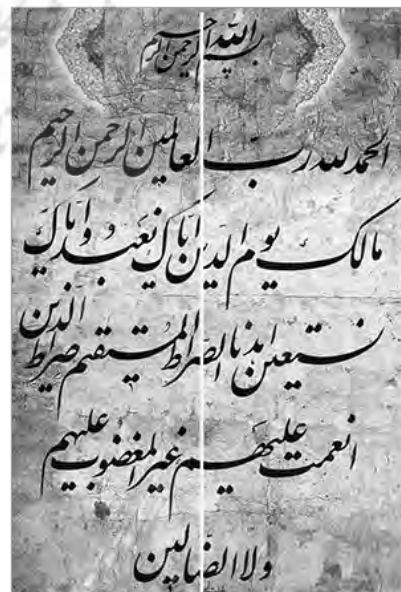 بسم الله الرحمن الرحیم
الحمد لله رب العالمین الرحمن الرحیم
مالک یوم الدین ایاک نعبد وایاک
نستعین اهدنا الصراط المستقیم صراط الذین
انعمت علیهم غیر المغضوب علیهم
ولا الضالین